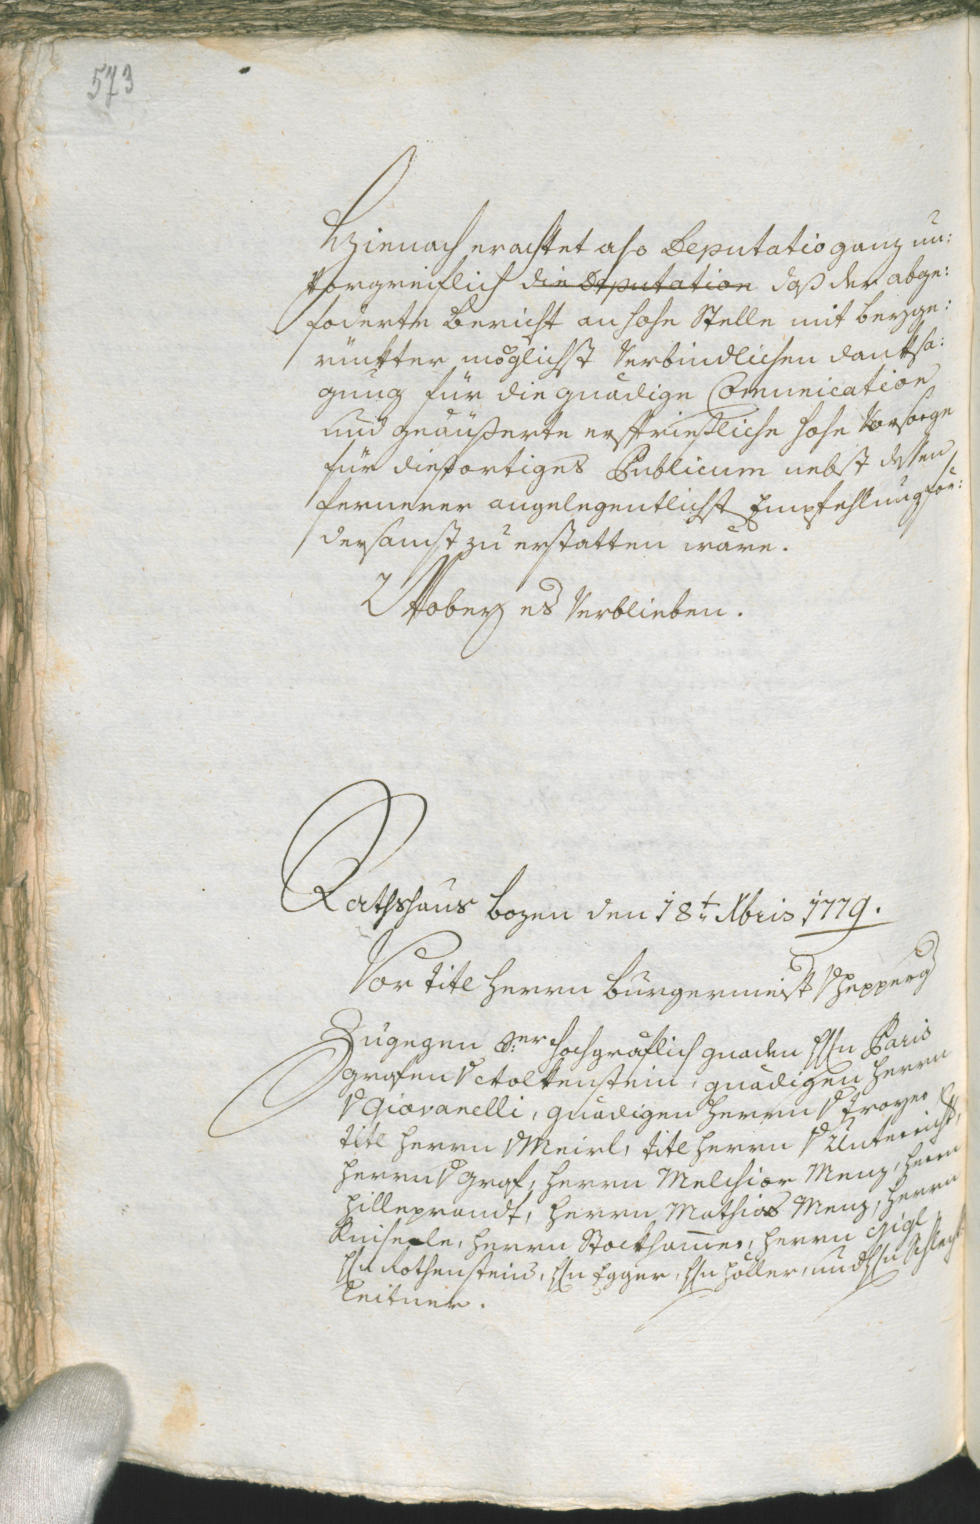 573
Hienach erachtet also Deputatio ganz un:
vorgreiflich die Deputation daß der abge:
foderte Bericht an hohe Stelle mit beyge:
rückter möglichst Verbindlichen danksa:
gung für die gnädige Comunication
und geäußerte ersprießliche hohe Vorsorge
für diesortiges Publicum nebst dessen
fernerer angelegentlichst Empfehlung for:
dersamst zu erstatten wäre.
Wobey es Verblieben.
Rathshaus Bozen den 18t Xbris 1779.
Vor titl Herrn Burgermeist
Zugegen Sr Hochgräflich gnaden Hln Paris
grafen V Wolkenstein, gnädigen Herrn
V Giovanelli, gnädigen Herrn V Troyer
titl Herrn V Meirl, titl Herrn V Unterricht,
Herrn V Graf, Herrn Melchior Menz, Herrn
Hilleprandt, Herrn Mathias Menz, Herrn
Kuiselle, Herrn Stockhammer, Herrn Gigl
Hln Rothensteins, Hln Egger, Hln Höller, und Hln Schlecht
leitner.